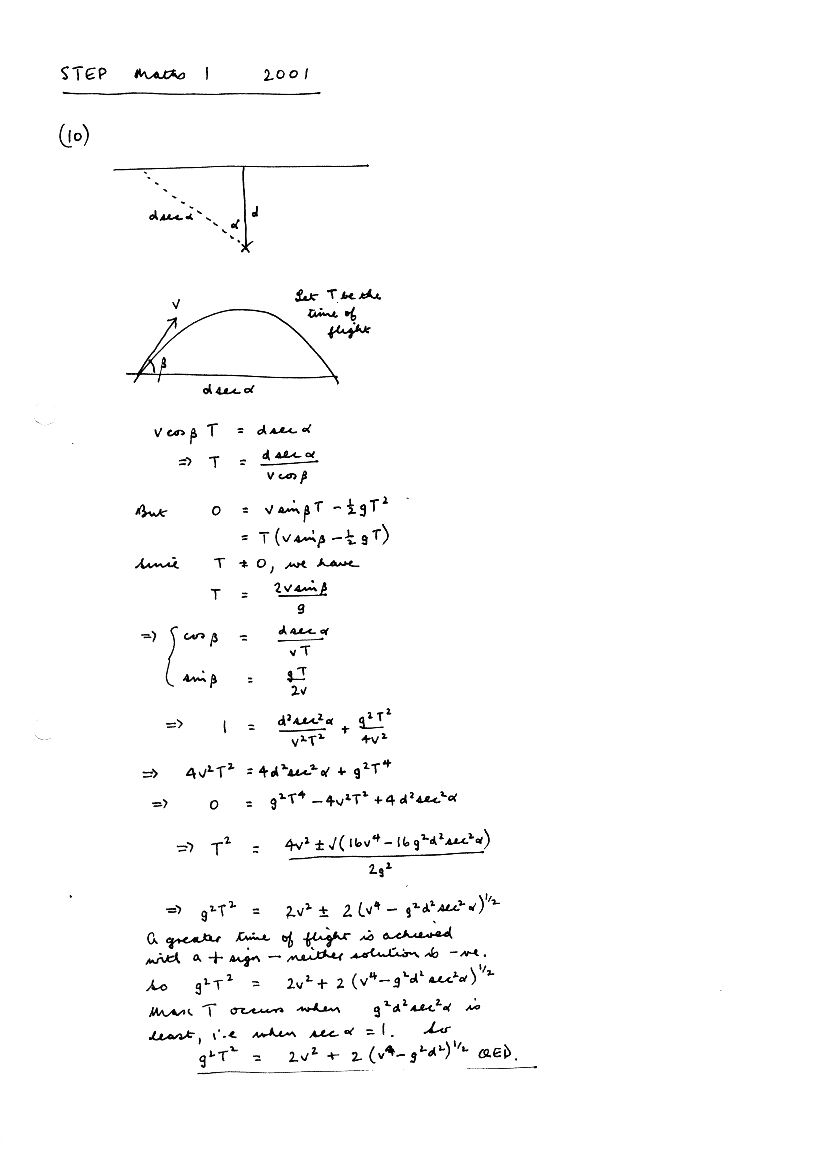 STEP Maths 1 2001
(10)
d sec α α d
V
Let T be the
time of
flight
β
d sec α
V cos β T = d sec α
⇒ T = d sec α / V cos β
But 0 = V sin β T - ½ g T²
= T (V sin β - ½ g T)
Since T ≠ 0, we have
T = 2V sin β / g
⇒ { cos β = d sec α / VT
sin β = gT / 2V
⇒ 1 = d² sec² α / V²T² + g²T² / 4V²
⇒ 4V²T² = 4d² sec² α + g²T⁴
⇒ 0 = g²T⁴ - 4V²T² + 4d² sec² α
⇒ T² = 4V² ± √(16V⁴ - 16g²d² sec² α) / 2g²
⇒ g²T² = 2V² ± 2 (V⁴ - g²d² sec² α)^1/2
A greater time of flight is achieved
with a + sign - neither solution is -ve.
So g²T² = 2V² + 2 (V⁴ - g²d² sec² α)^1/2
Max T occurs when g²d² sec² α is
least, i.e when sec α = 1. So
g²T² = 2V² + 2 (V⁴ - g²d²)^1/2 QED.